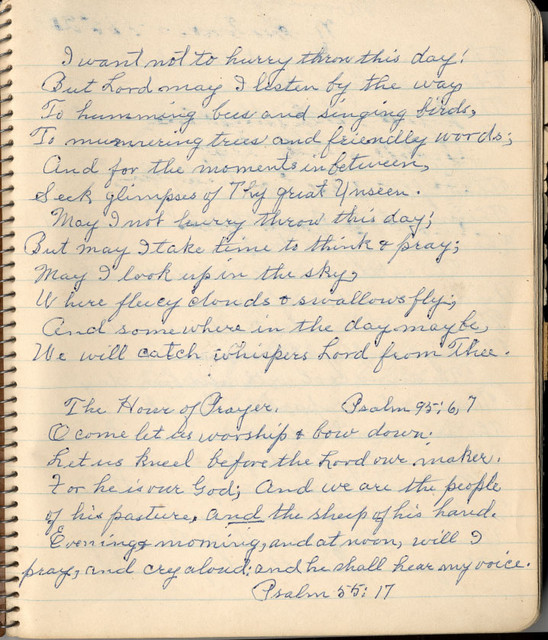 I want not to hurry throw this day!
But Lord may I listen by the way
To humming bees and singing birds,
To murmering trees and friendly words;
And for the moments in between,
Seek glimpses of Thy great Unseen.
May I not hurry throw this day;
But may I take time to think & pray;
May I look up in the sky,
Where fleecy clouds & swallows fly;
And somewhere in the day, maybe,
We will catch whispers Lord from Thee.
The Hour of Prayer. Psalm 95:6,7
O come let us worship & bow down.
Let us kneel before the Lord our maker.
For he is our God; And we are the people
of his pasture, and the sheep of his hand.
Evening & morning, and at noon, will I
pray, and cry aloud: and he shall hear my voice.
Psalm 55:17